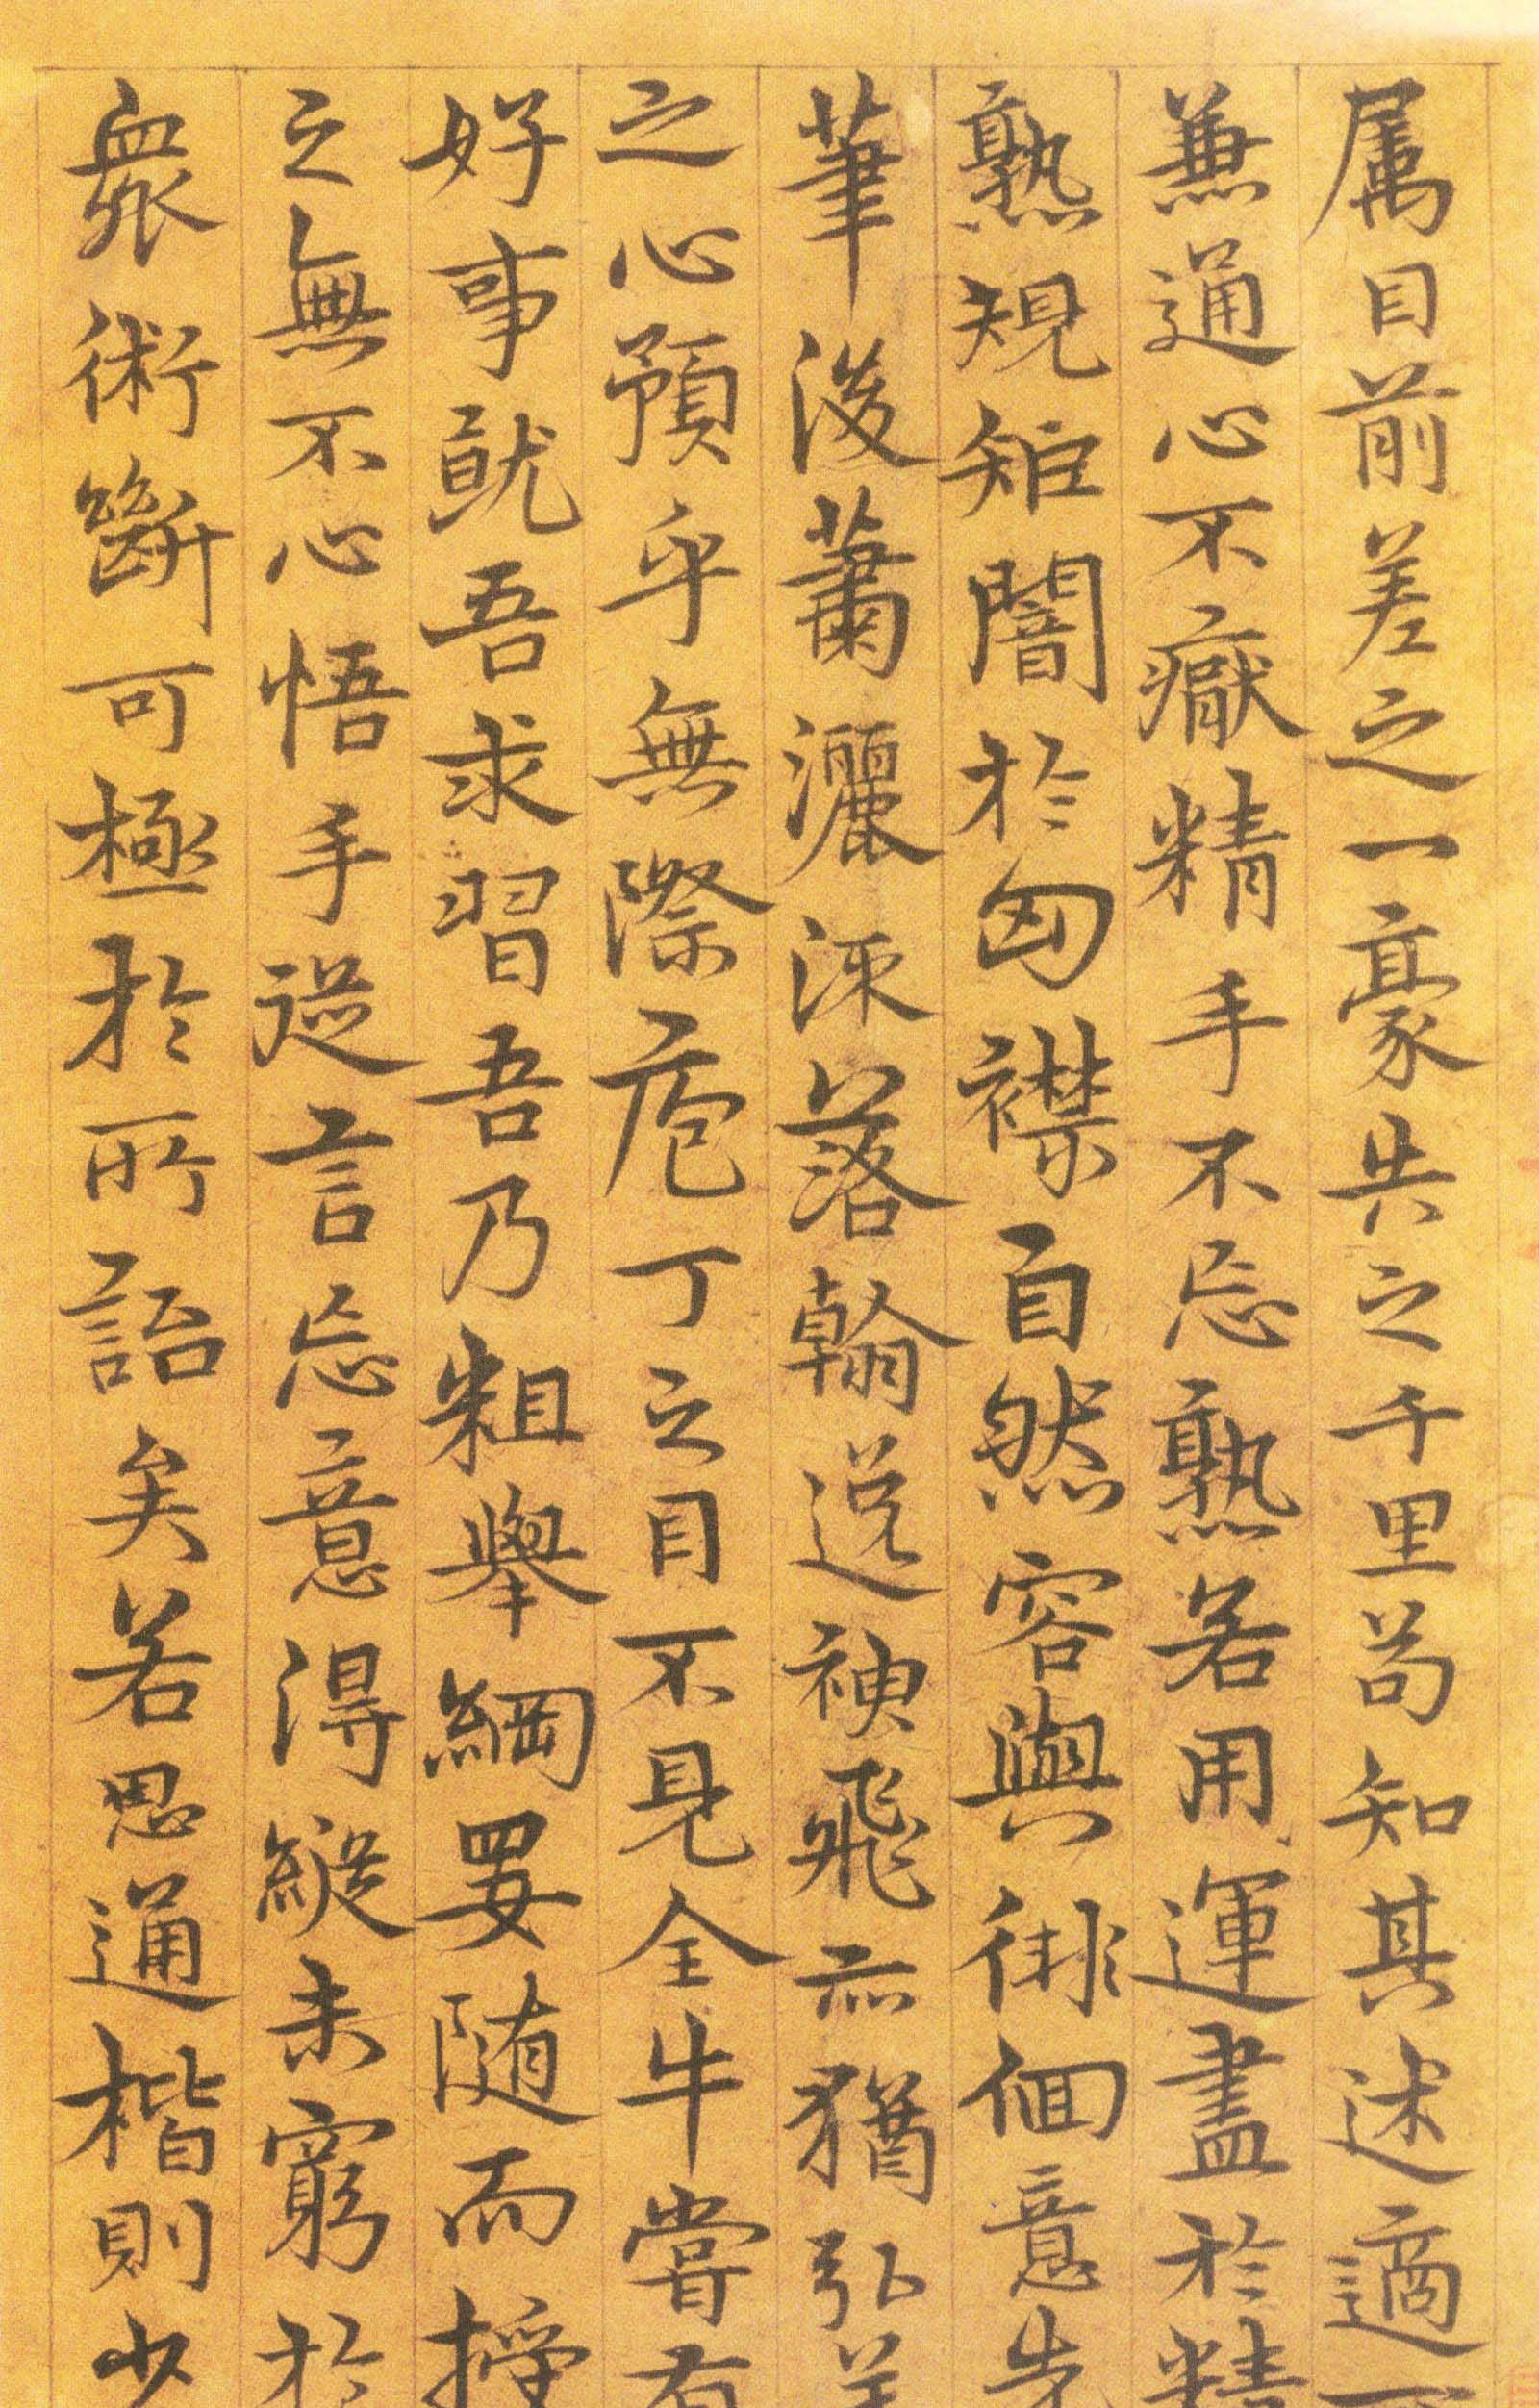 属目前差之一豪失之千里苟知其述適
兼通心不厭精手不忘熟若用運盡於精
熟規矩闇於匈襟自然容與徘徊意先
筆後蕭灑流落翰逸神飛亦猶弘羊
之心預乎無際庖丁之目不見全牛嘗有
好事就吾求習吾乃粗舉綱要随而授
之無不心悟手從言忘意得縱未窮於
衆術斷可極於所詣矣若思通楷則少